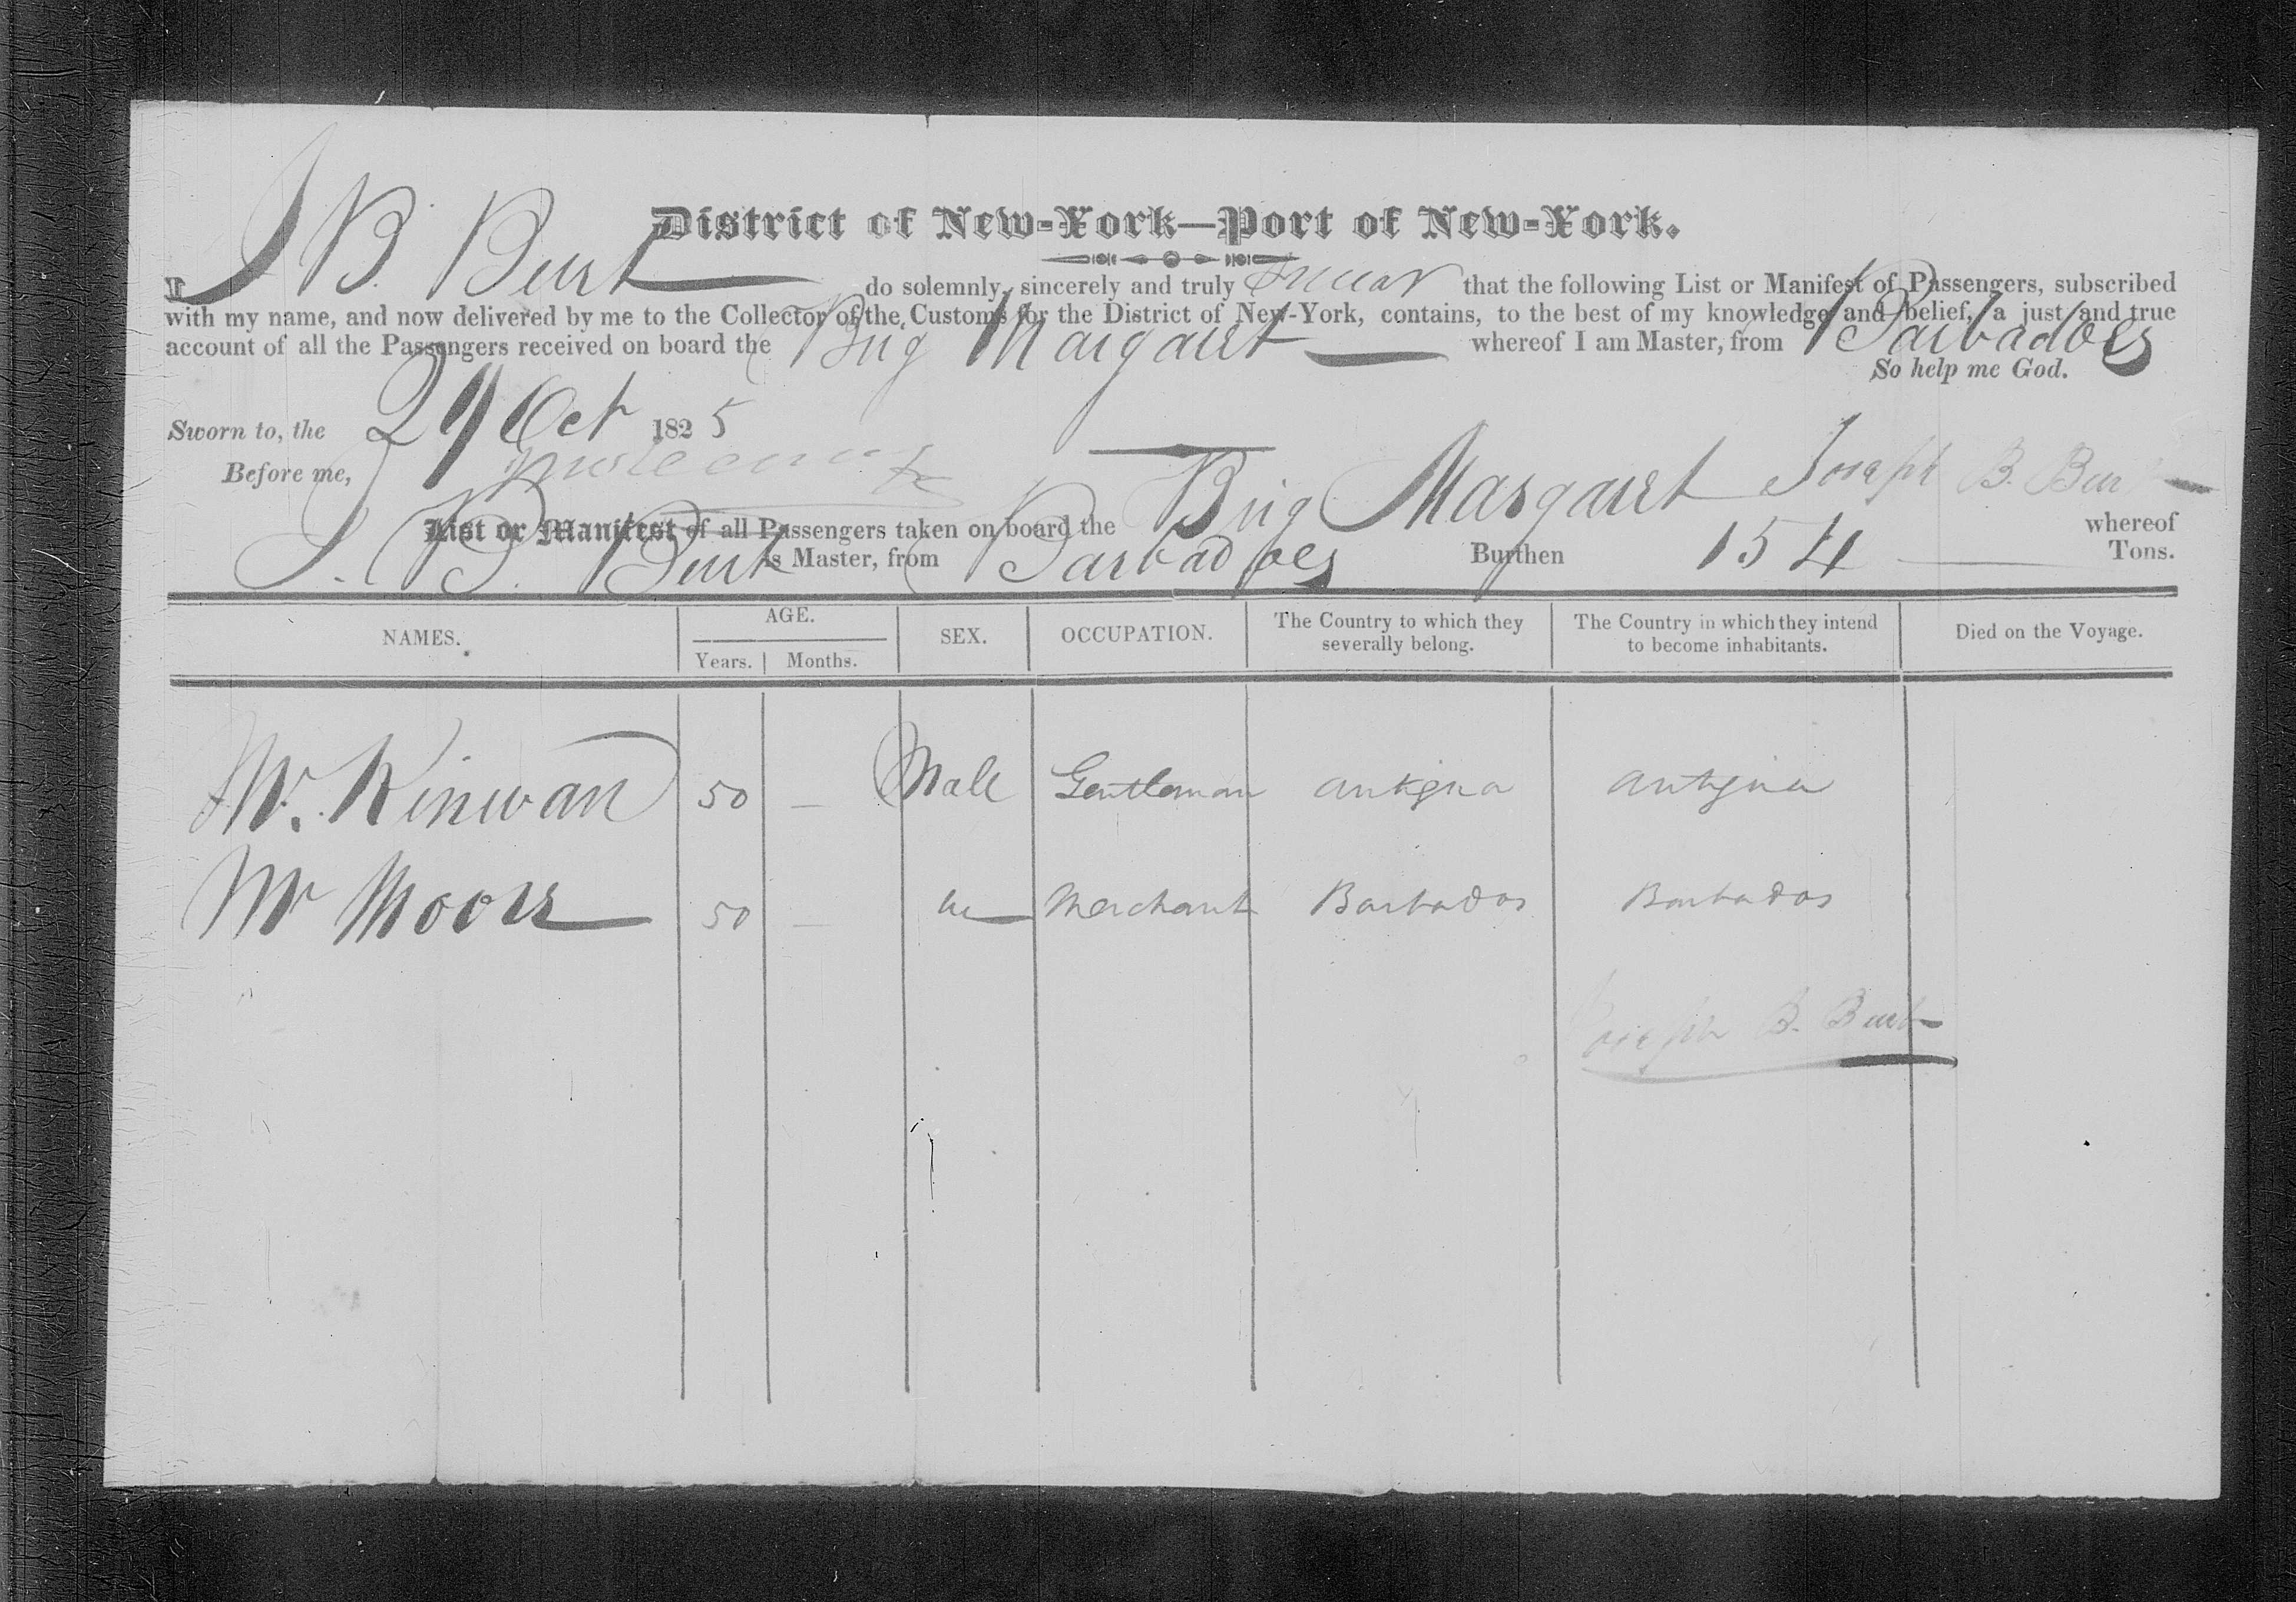 District of New-York—Port of New-York.
I J B. Burt do solemnly, sincerely and truly swear that the following List or Manifest of Passengers, subscribed
with my name, and now delivered by me to the Collector of the Customs for the District of New-York, contains, to the best of my knowledge and belief, a just and true
account of all the Passengers received on board the Brig Margaret whereof I am Master, from Barbadoes
So help me God.
Sworn to, the 29 Oct 1825
Before me,
Joseph B. Burt
List or Manifest of all Passengers taken on board the Brig Margaret whereof
J. B. Burt is Master, from Barbadoes Burthen 154 Tons.
NAMES. AGE. SEX. OCCUPATION. The Country to which they severally belong. The Country in which they intend to become inhabitants. Died on the Voyage.
Years. Months.
Mr. Kirwan 50 — Male Gentleman Antigua Antigua
Mr Moore 50 — Merchant Barbados Barbados
Joseph B. Burt